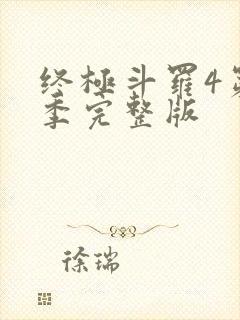 终極斗羅4第
季完整版
徐瑞